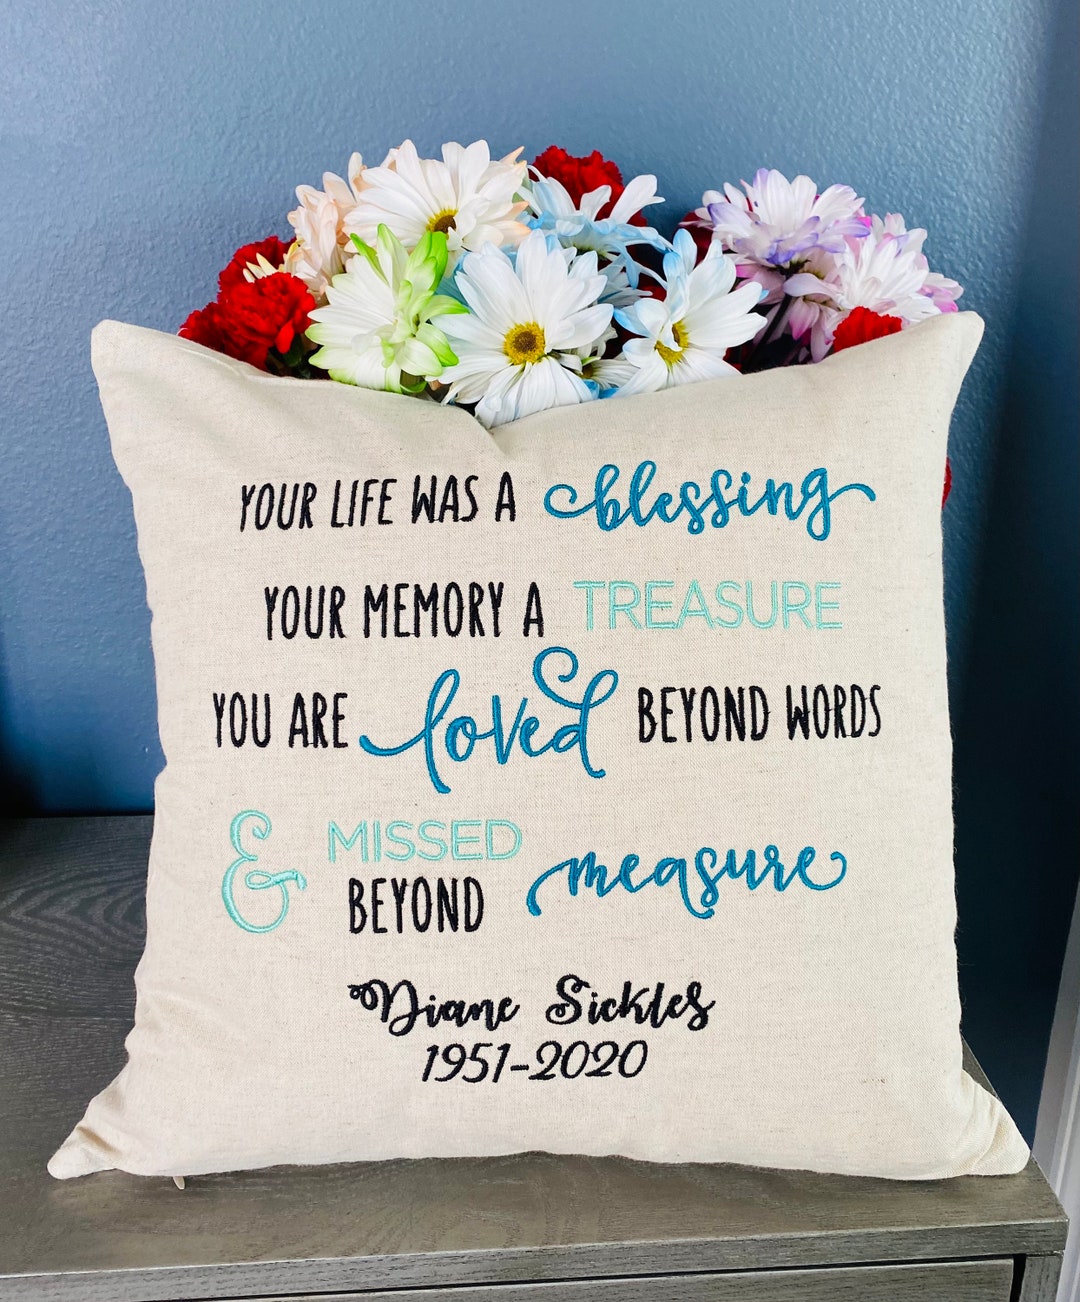 YOUR LIFE WAS A blessing
YOUR MEMORY A TREASURE
YOU ARE loved BEYOND WORDS
& MISSED BEYOND measure
Diane Sickles
1951-2020